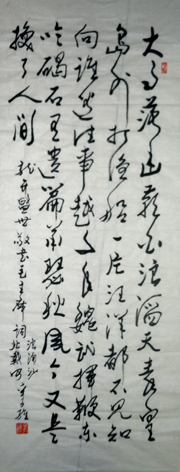 大雨落幽燕白浪滔天秦皇
岛外打渔船一片汪洋都不见知
向谁边往事越千年魏武挥鞭东
临碣石有遗篇萧瑟秋风今又是
换了人间
龙年盛世敬书毛主席词北戴河
浪淘沙